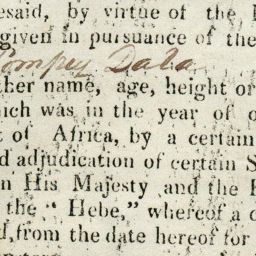 esaid, by virtue of the
given in pursuance of the
Pompey Daba
ther name, age, height or
hich was in the year of o
t of Africa, by a certain
d adjudication of certain S
n His Majesty and the
the "Hebe," whereof a c
d, from the date hereof for